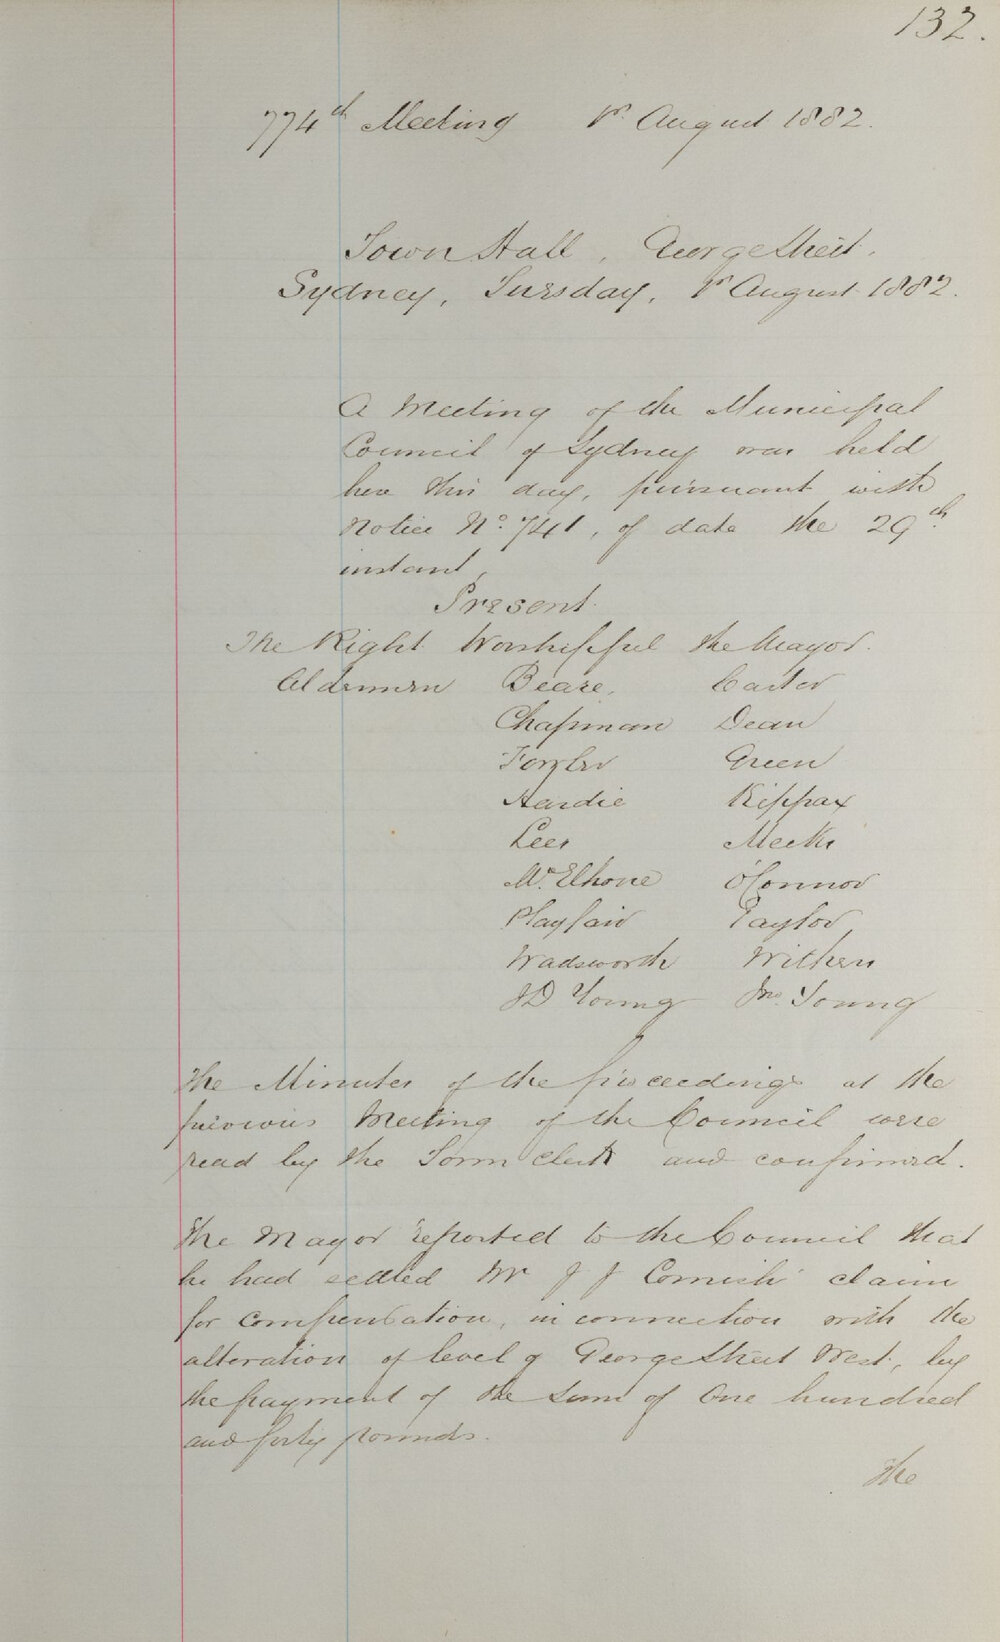 132.
774th Meeting 1st August 1882.
Town Hall, George Street.
Sydney, Tuesday, 1st August 1882.
A Meeting of the Municipal
Council of Sydney was held
here this day, pursuant with
Notice No. 741, of date the 29th
instant,
Present.
The Right Worshipful the Mayor.
Aldermen Beare, Carter
Chapman Dean
Fowler Green
Hardie Kippax
Lees Meeks
McElhone O'Connor
Playfair Taylor
Wadsworth Withers
JD Young Jno. Young
The Minutes of the proceedings at the
previous Meeting of the Council were
read by the Town Clerk and confirmed.
The Mayor reported to the Council that
he had settled Mr J J Cornish' claim
for compensation, in connection with the
alteration of level of George Street West, by
the payment of the Sum of One hundred
and forty pounds.
The